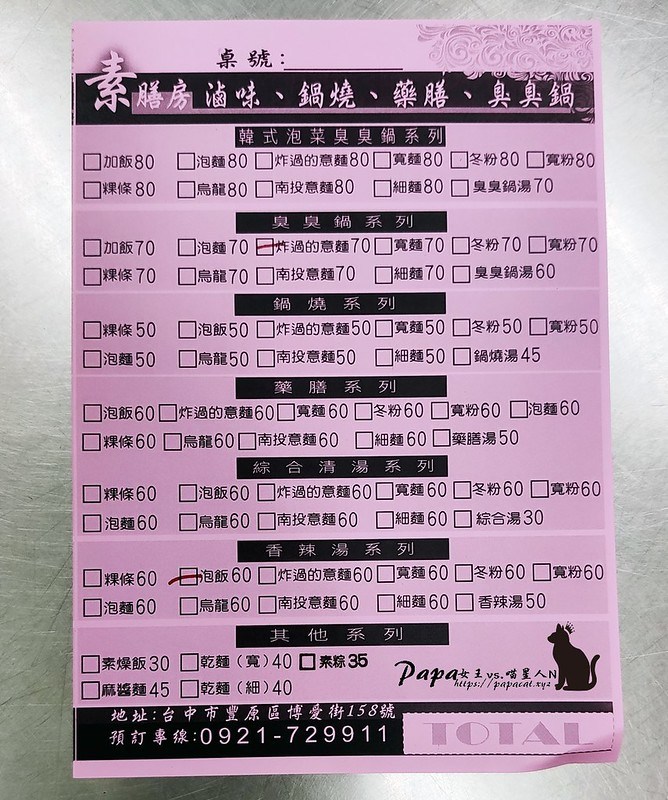 桌號：
素膳房 滷味、鍋燒、藥膳、臭臭鍋
韓式泡菜臭臭鍋系列
加飯80 泡麵80 炸過的意麵80 寬麵80 冬粉80 寬粉80
粿條80 烏龍80 南投意麵80 細麵80 臭臭鍋湯70
臭臭鍋系列
加飯70 泡麵70 炸過的意麵70 寬麵70 冬粉70 寬粉70
粿條70 烏龍70 南投意麵70 細麵70 臭臭鍋湯60
鍋燒系列
粿條50 泡飯50 炸過的意麵50 寬麵50 冬粉50 寬粉50
泡麵50 烏龍50 南投意麵50 細麵50 鍋燒湯45
藥膳系列
泡飯60 炸過的意麵60 寬麵60 冬粉60 寬粉60 泡麵60
粿條60 烏龍60 南投意麵60 細麵60 藥膳湯50
綜合清湯系列
粿條60 泡飯60 炸過的意麵60 寬麵60 冬粉60 寬粉60
泡麵60 烏龍60 南投意麵60 細麵60 綜合湯30
香辣湯系列
粿條60 泡飯60 炸過的意麵60 寬麵60 冬粉60 寬粉60
泡麵60 烏龍60 南投意麵60 細麵60 香辣湯50
其他系列
素燥飯30 乾麵（寬）40 素粽35
麻醬麵45 乾麵（細）40
Papa女王vs.喵星人N
https://papacat.xyz
地址：台中市豐原區博愛街158號
預訂專線：0921-729911
TOTAL